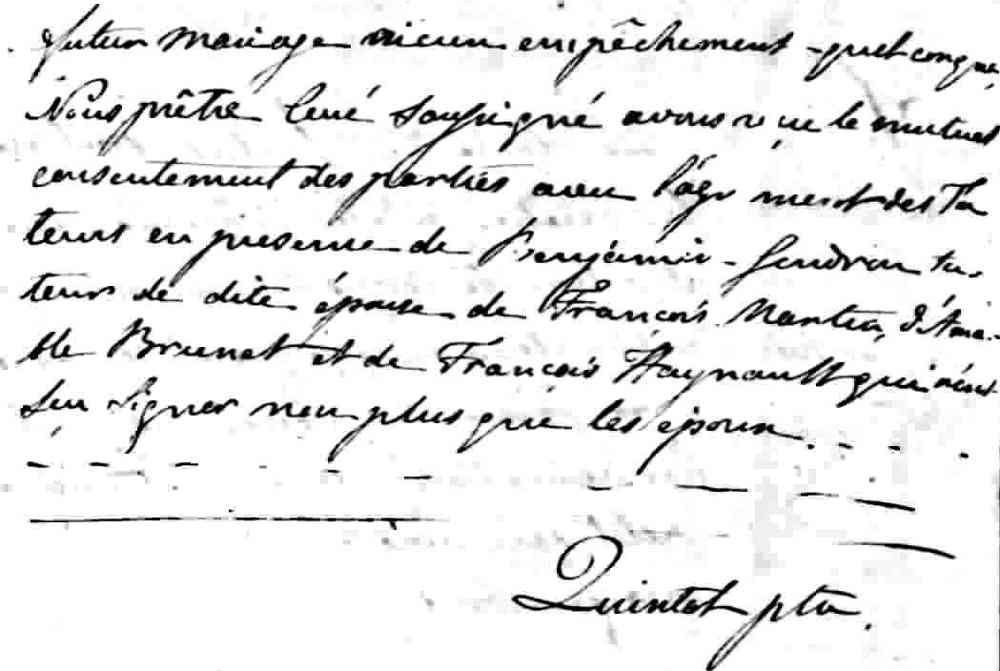 futur mariage aucun empêchement quelconque,
Nous prêtre Curé soussigné avons reçu le mutuel
consentement des parties avec l'agrement des Tu
teurs en presence de Benjamin Gendron tu-
teur de dite épouse de François Martin, d'Ama-
ble Brunet et de François Haynault qui n'ont
seu signer non plus que les epoux.
Quintal ptre.